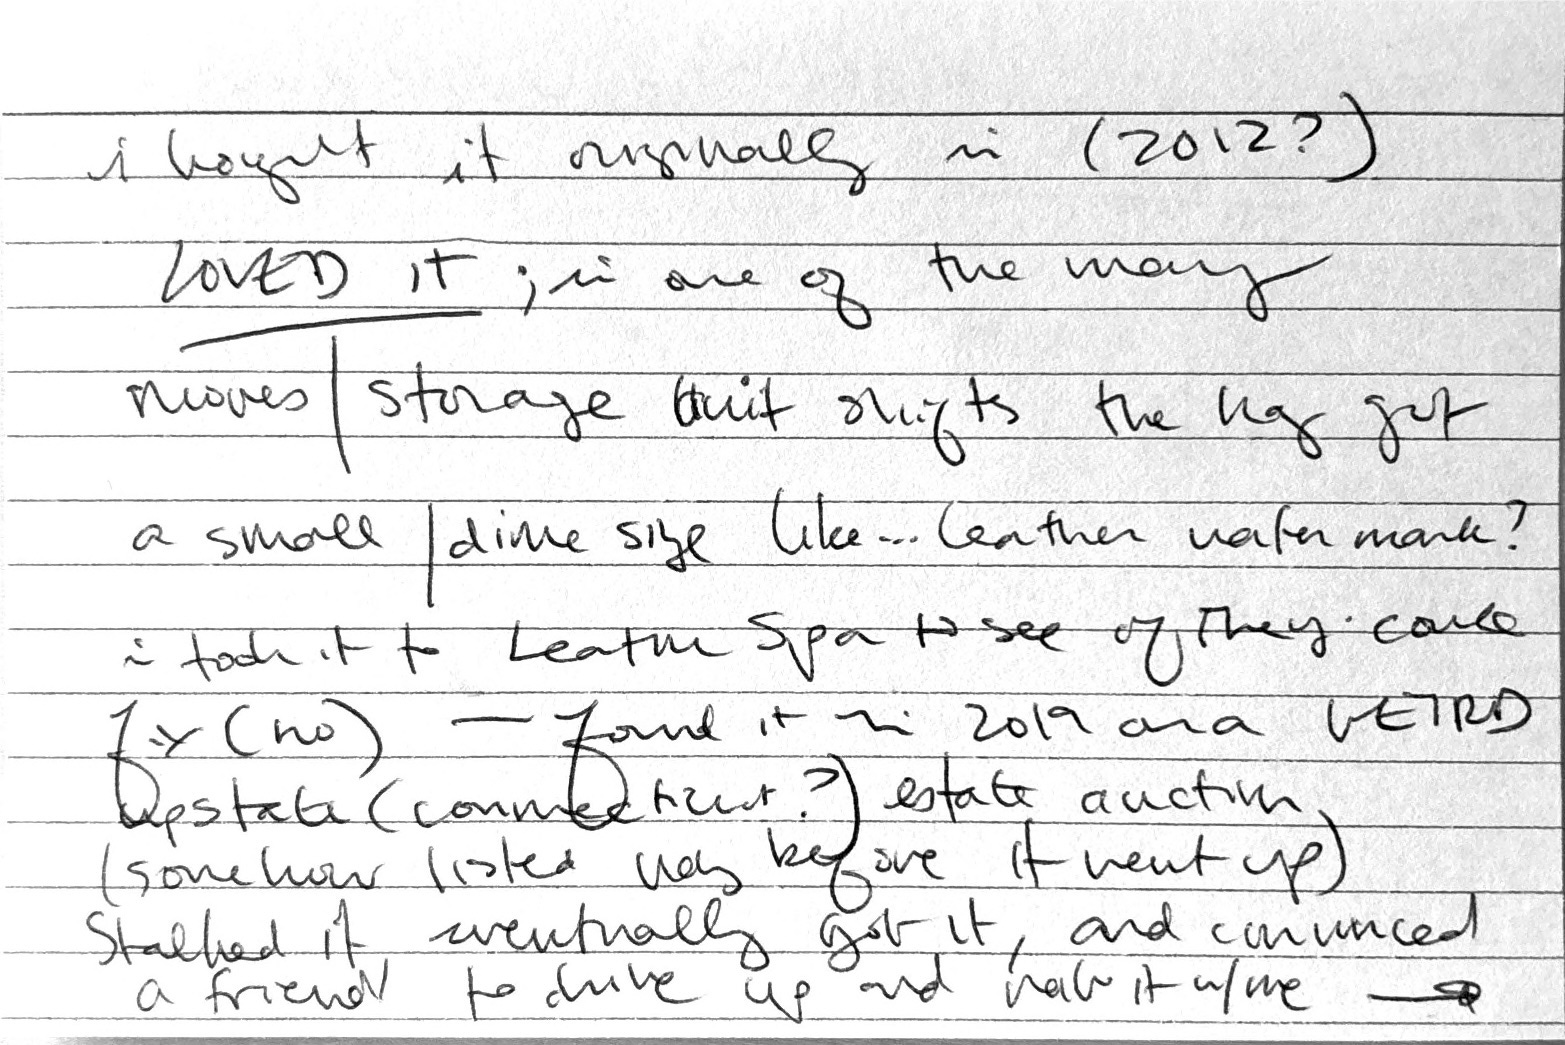 i bought it originally in (2012?)
LOVED it ; in one of the many
moves | storage unit shifts the leg got
a small | dime size like... leather water mark?
i took it to Leather Spa to see if They could
fix (no) — found it in 2019 on a
upstate (connecticut?) estate auction
(somehow listed way before it went up)
Stalked it eventually got it, and convinced
a friend to drive up and it w/me →